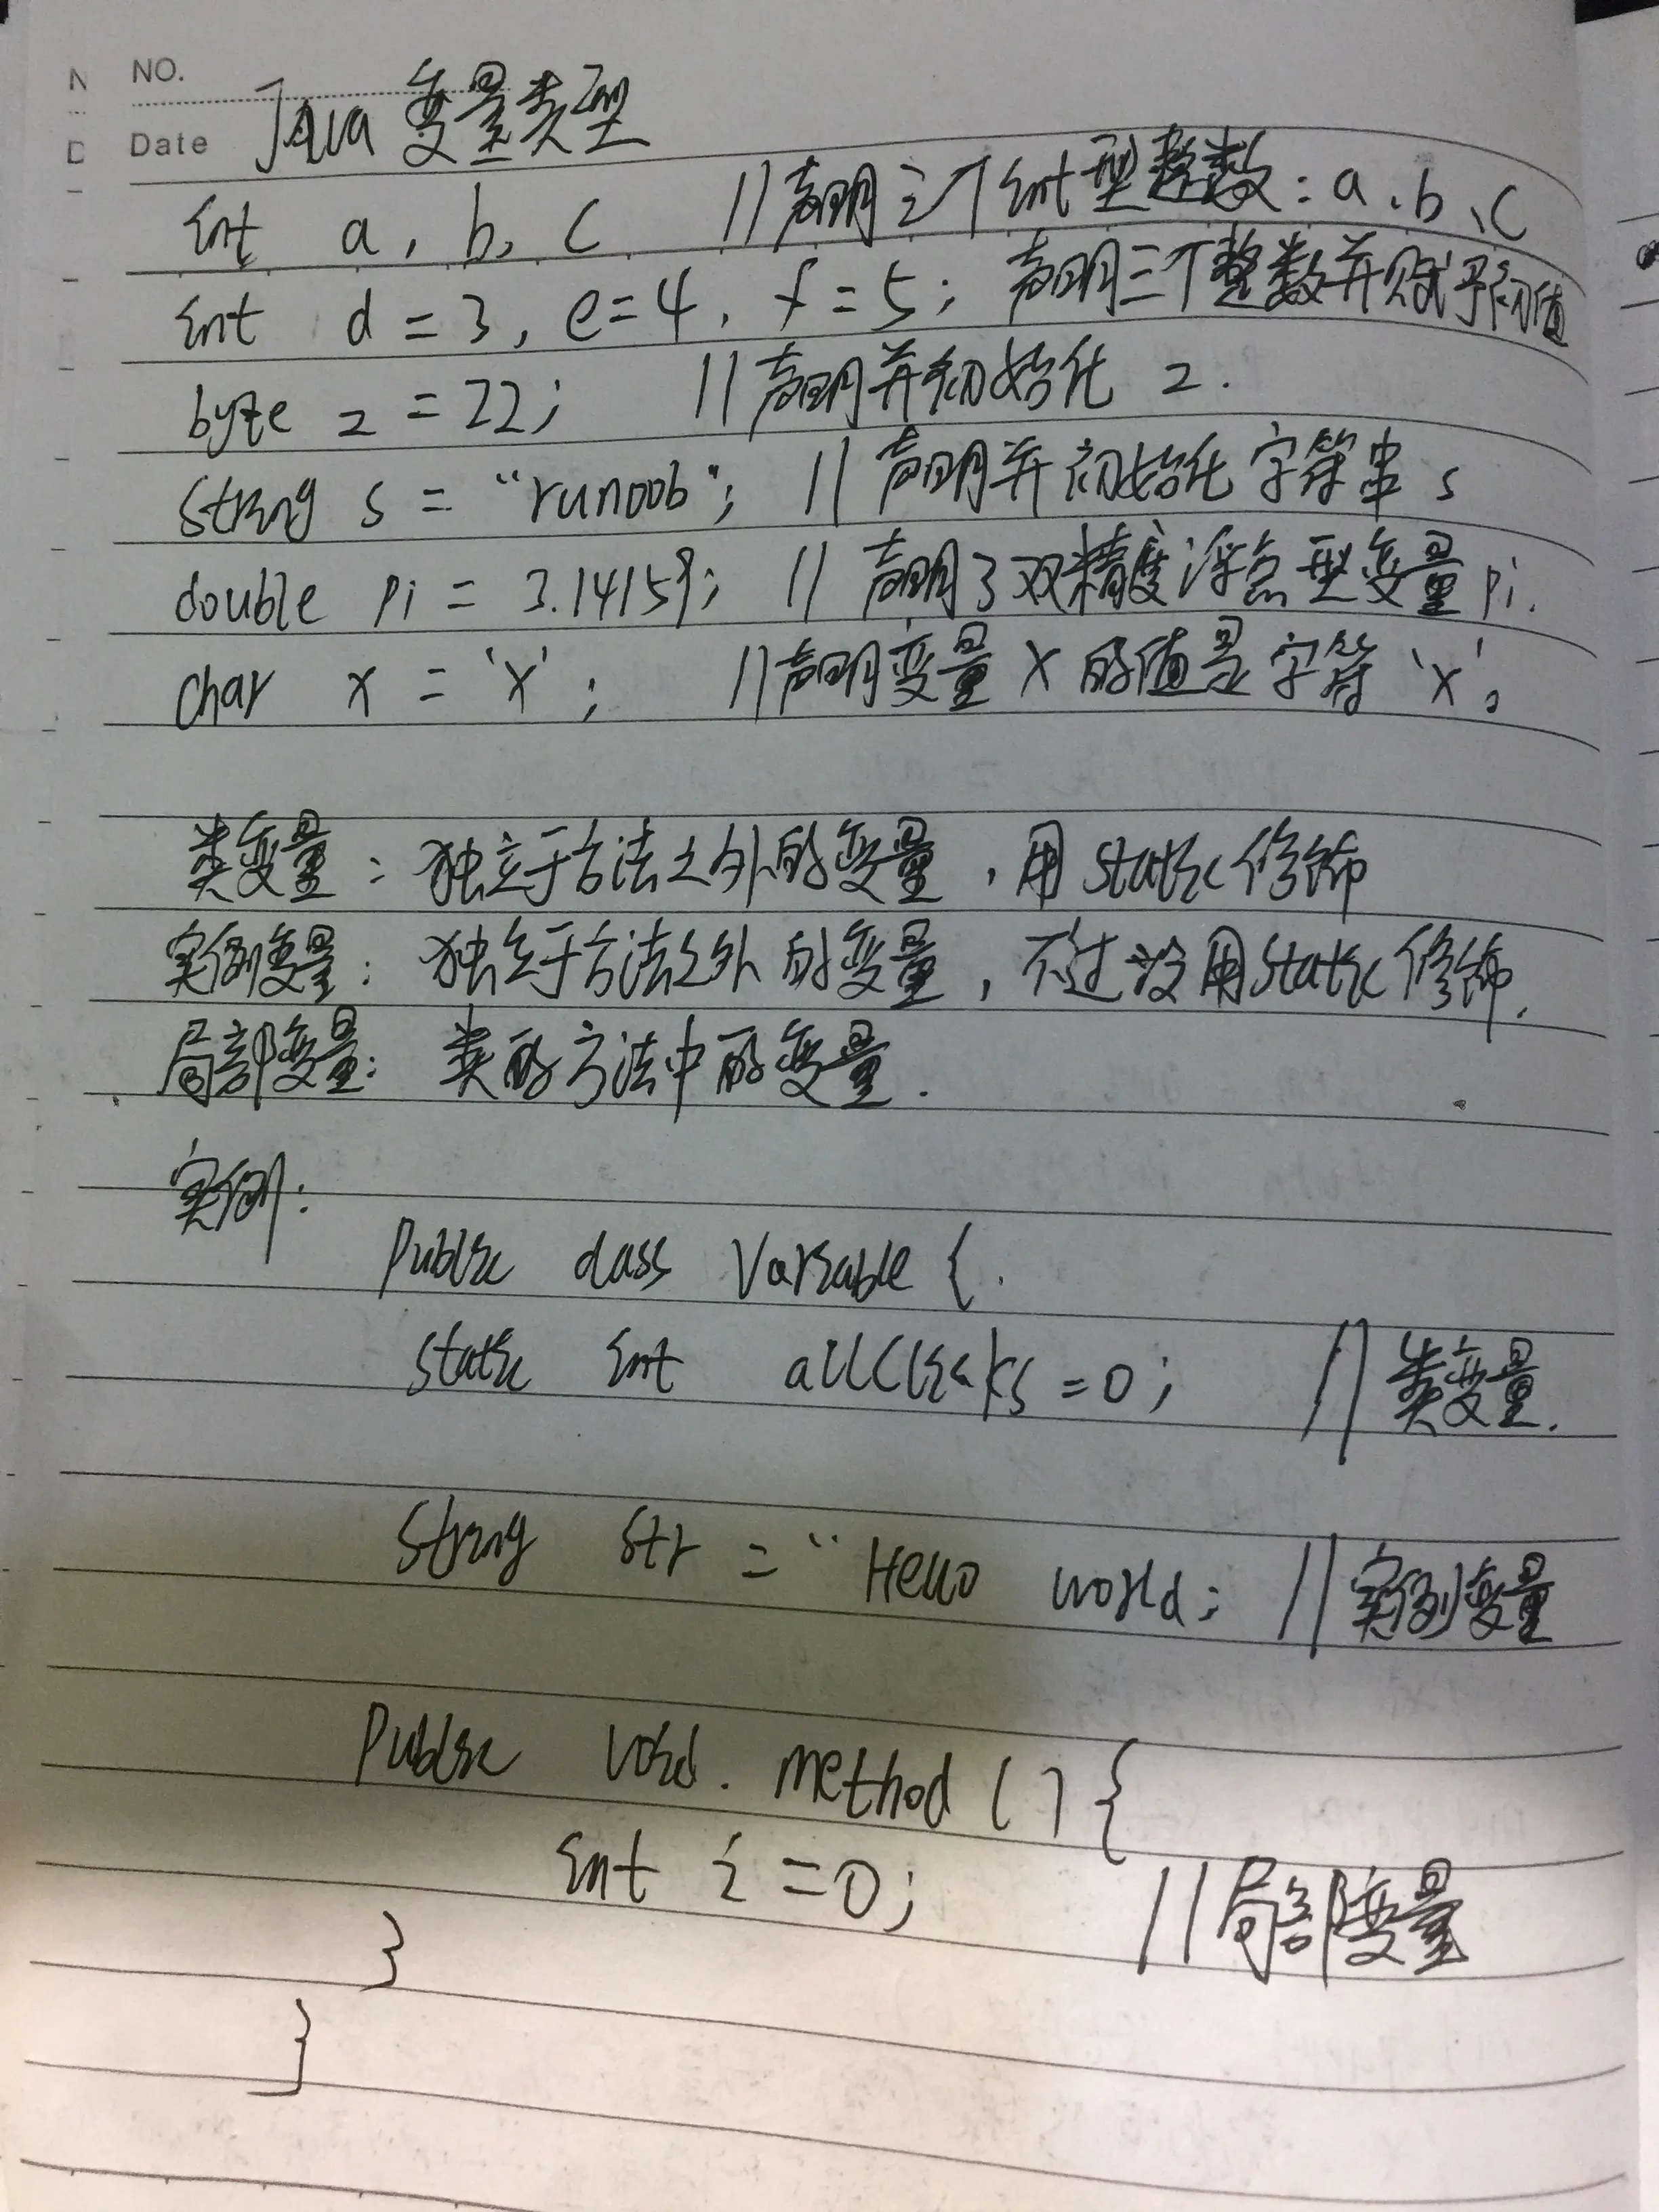 N NO.
D Date Java 变量类型
int a, b, c //声明三个int型整数:a、b、c
int d = 3, e=4, f=5; 声明三个整数并赋予初值
byte z = 22; //声明并初始化 z.
string s = "runoob"; // 声明并初始化字符串 s
double pi = 3.14159; // 声明了双精度浮点型变量pi.
char x = 'x'; //声明变量 x 的值是字符 'x'。
类变量: 独立于方法之外的变量,用 static 修饰
实例变量: 独立于方法之外的变量,不过没用static 修饰.
局部变量: 类的方法中的变量.
实例:
Public class Variable {.
static int allClicks=0; // 类变量.
string str = "Hello world; // 实例变量
Public void. method () {
int i=0; //局部变量
}
}